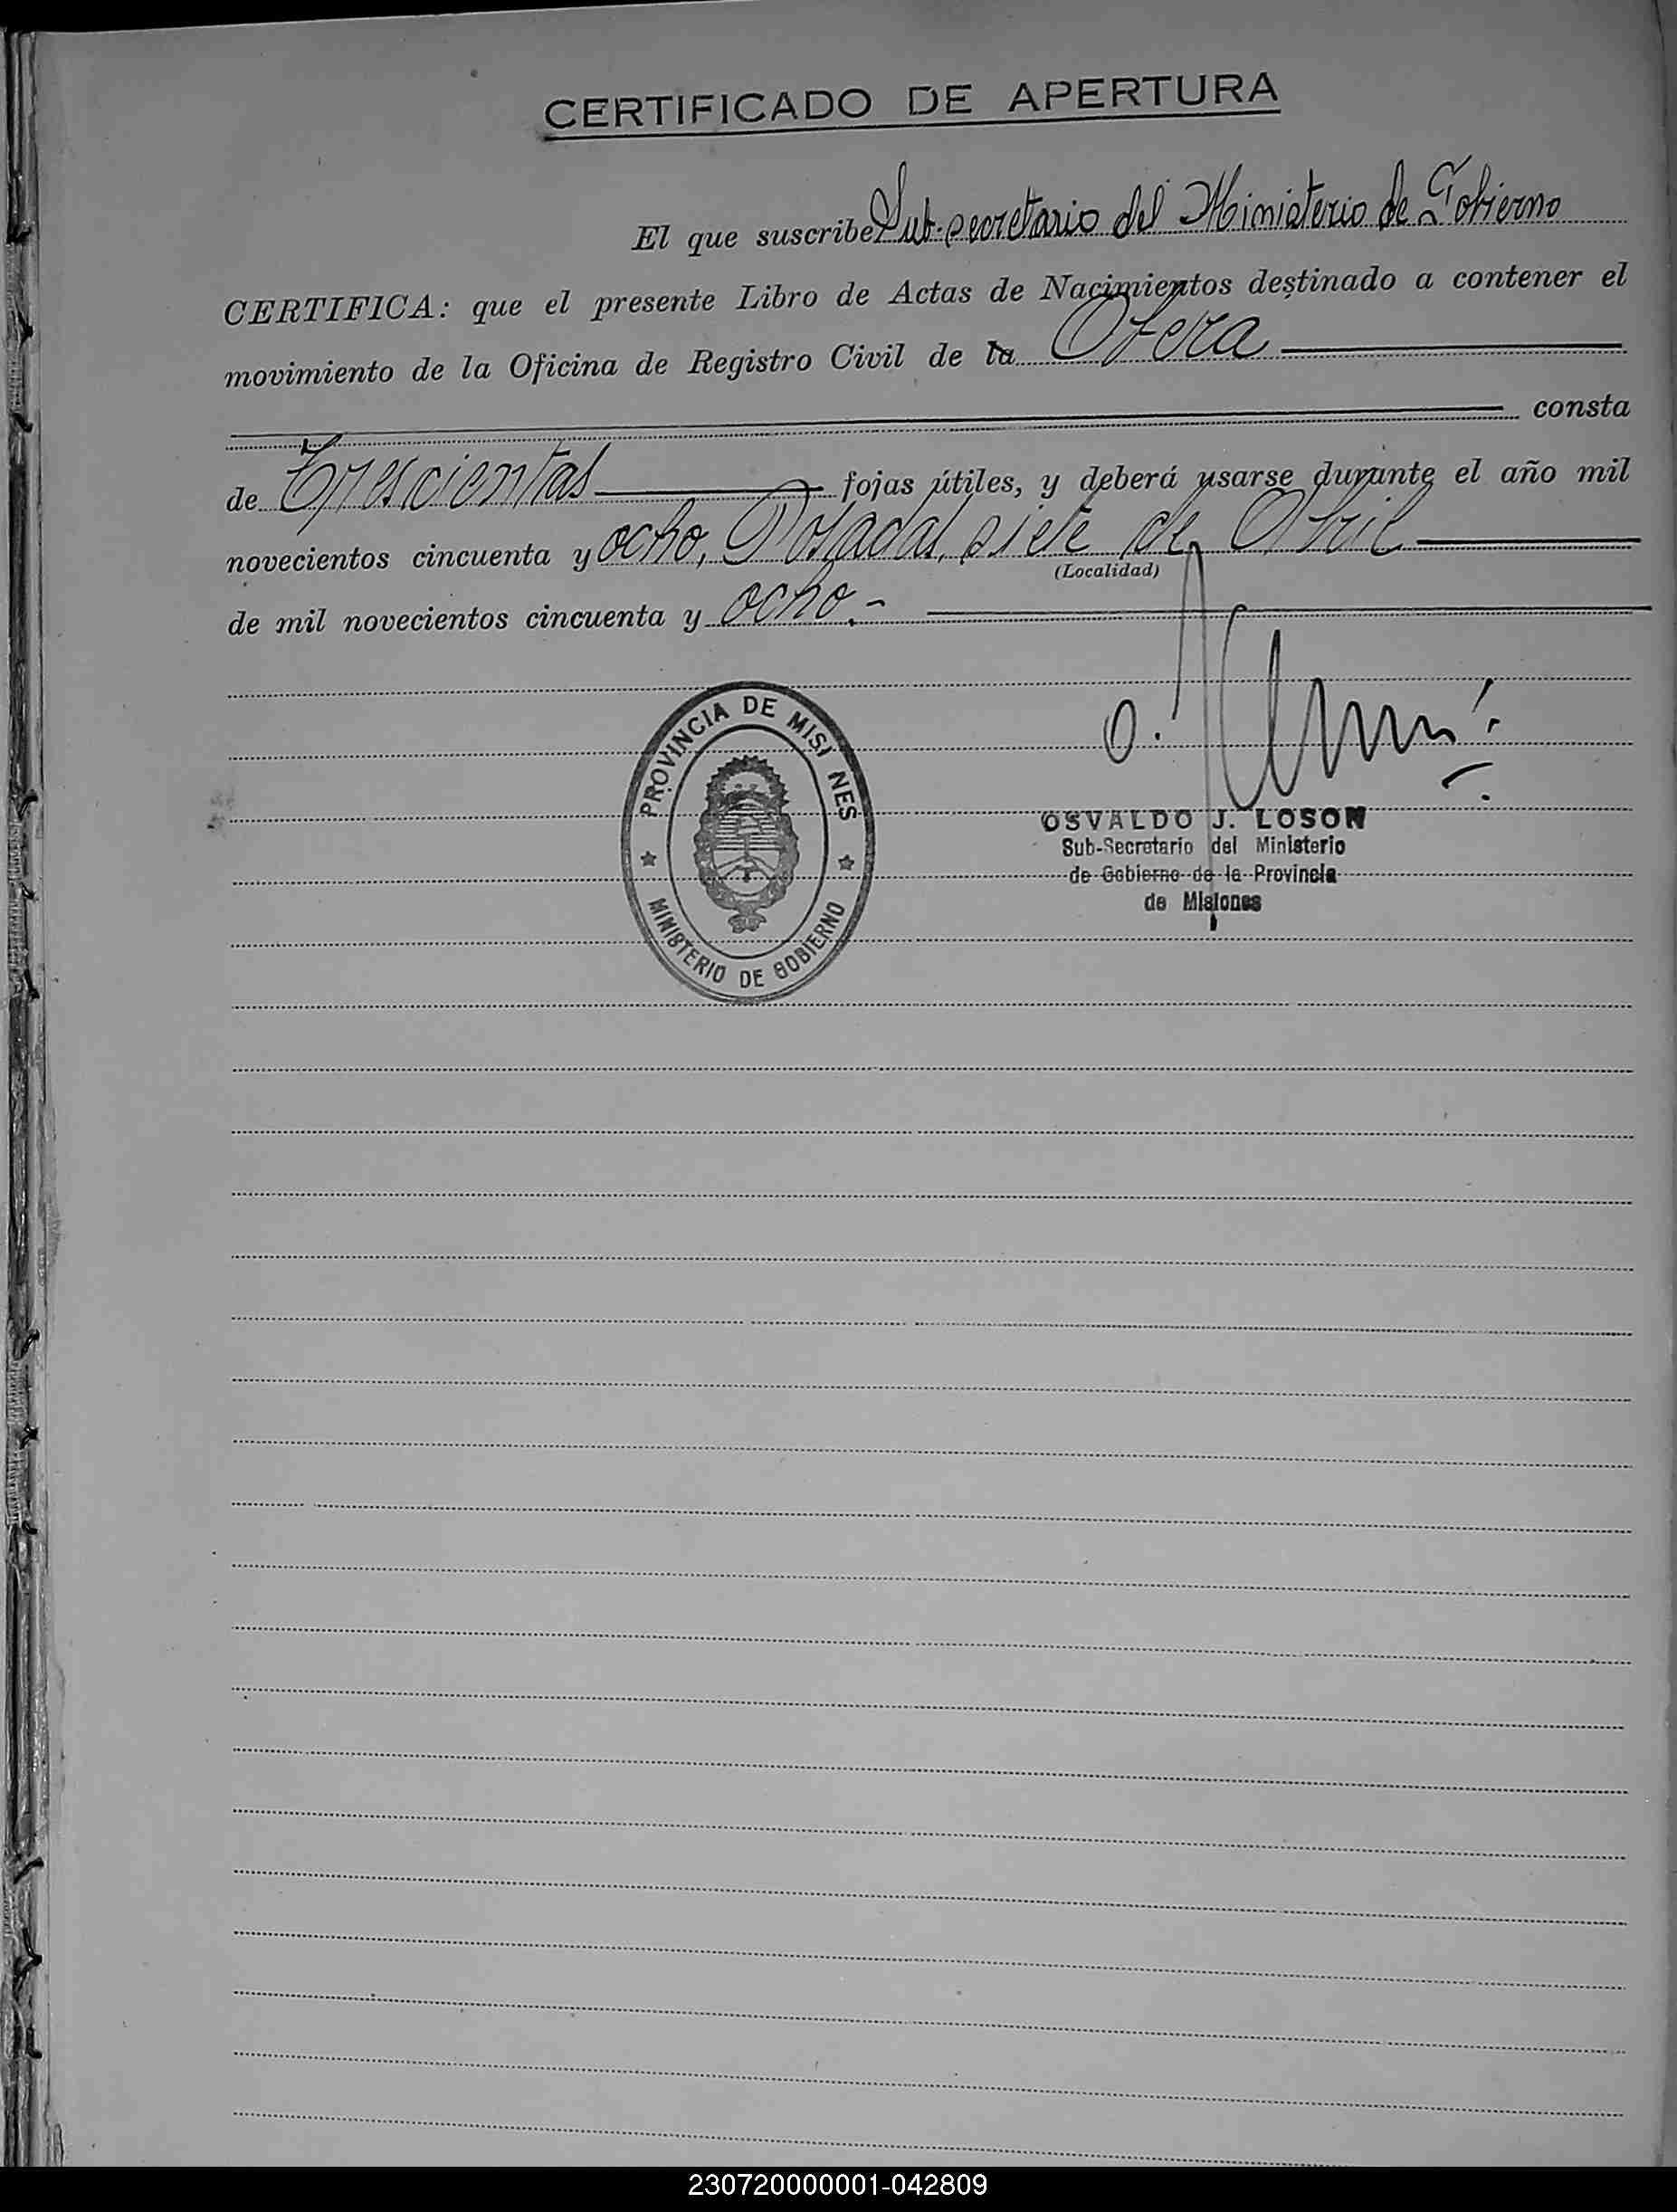 CERTIFICADO DE APERTURA
El que suscribe Sub-secretario del Ministerio de Gobierno
CERTIFICA: que el presente Libro de Actas de Nacimientos destinado a contener el
movimiento de la Oficina de Registro Civil de la Obera
consta
de Trescientas fojas útiles, y deberá usarse durante el año mil
novecientos cincuenta y ocho, Posadas, siete de Abril
(Localidad)
de mil novecientos cincuenta y ocho.-
PROVINCIA DE MISI NES
MINISTERIO DE GOBIERNO
OSVALDO J. LOSON
Sub-Secretario del Ministerio
de Gobierno de la Provincia
de Misiones
230720000001-042809